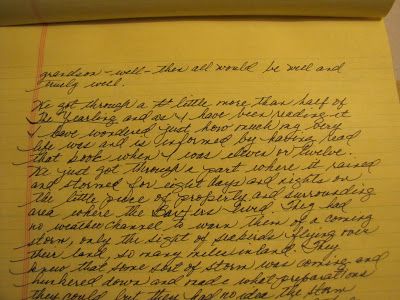 grandson - well - then all would be well and
truly well.
We got through a little more than half of
The Yearling and as I have been reading it
I have wondered just how much my very
life was and is informed by having read
that book when I was eleven or twelve.
We just got through a part where it rained
and stormed for eight days and nights on
the little piece of property and surrounding
area where the Baxters lived. They had
no weather channel to warn them of a coming
storm, only the sight of seabirds flying over
their land so many miles inland. They
knew that some sort of storm was coming and
hunkered down and made what preparations
they could but they had no idea the storm